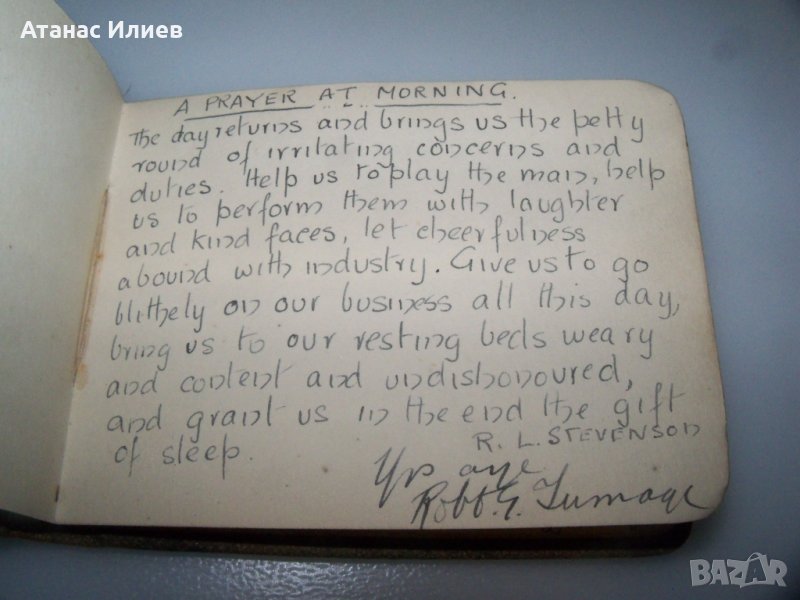 Атанас Илиев
A PRAYER AT MORNING.
The day returns and brings us the petty
round of irritating concerns and
duties. Help us to play the man, help
us to perform them with laughter
and kind faces, let cheerfulness
abound with industry. Give us to go
blithely on our business all this day,
bring us to our resting beds weary
and content and undishonoured,
and grant us in the end the gift
of sleep.
R. L. STEVENSON
Yrs aye
Robt. G.
BAZAR